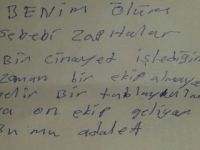 BENİM ÖLÜM
Sebebi Zabıtalar
Bir Cinayet işlediğin
zaman bir ekip
gelir Bir tablaykular
ya on ekip geliyor
Bu mu adalet